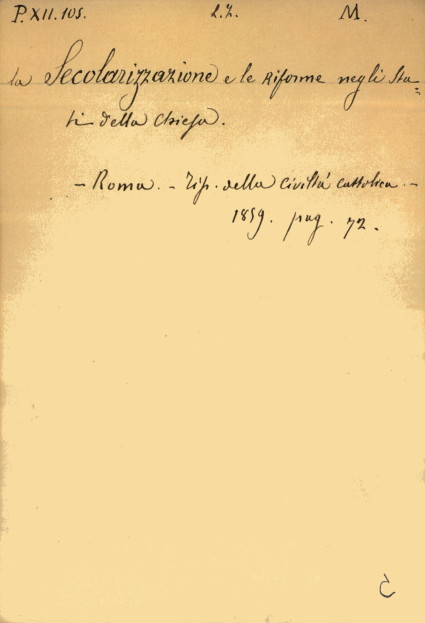 P. XII. 105. 2.2. M.
la Secolarizzazione e le Riforme negli Sta=
ti della Chiesa.
- Roma. - Tip. della Civiltá Cattolica. -
1859. pag. 72.